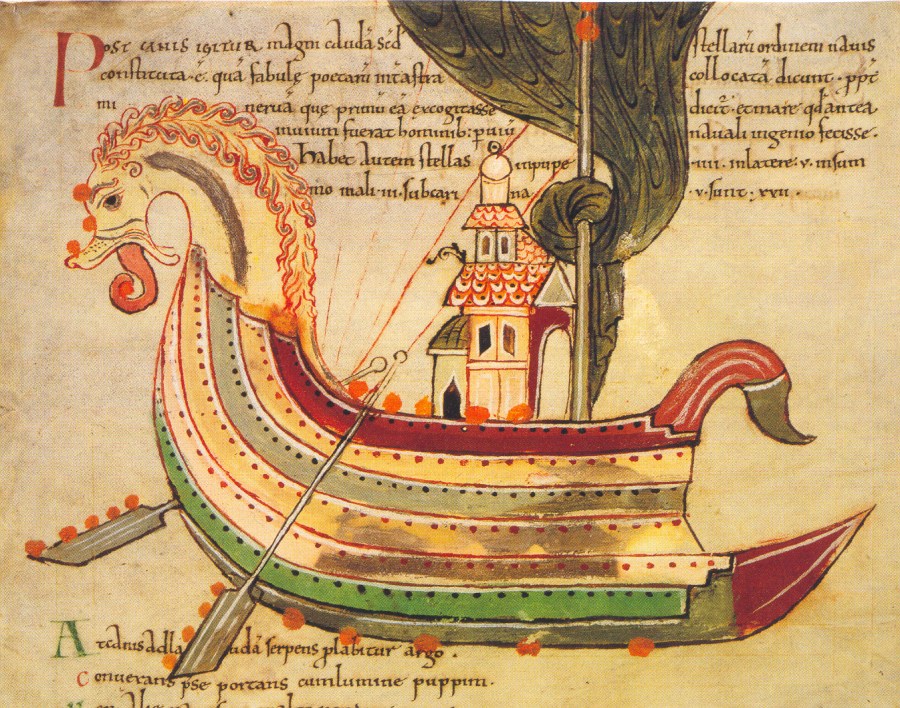 Post canis igitur magni caudā sed stellarū ordinem navis
constituta · ē · quā fabulę poetarū int astra collocatā dicunt · ppt
mi nervā quę primū eā excogitasse dicit · et mare qd antea
invium fuerat hominib: pviū navali ingenio fecisse ·
habet autem stellas inpuppe · iiii · in latere · v · insum
mo mali · iii · sub cari na · v · sunt · xxii ·
At canis ad udā serpens plabitur argo .
converans pse portans cumlumine puppim ·